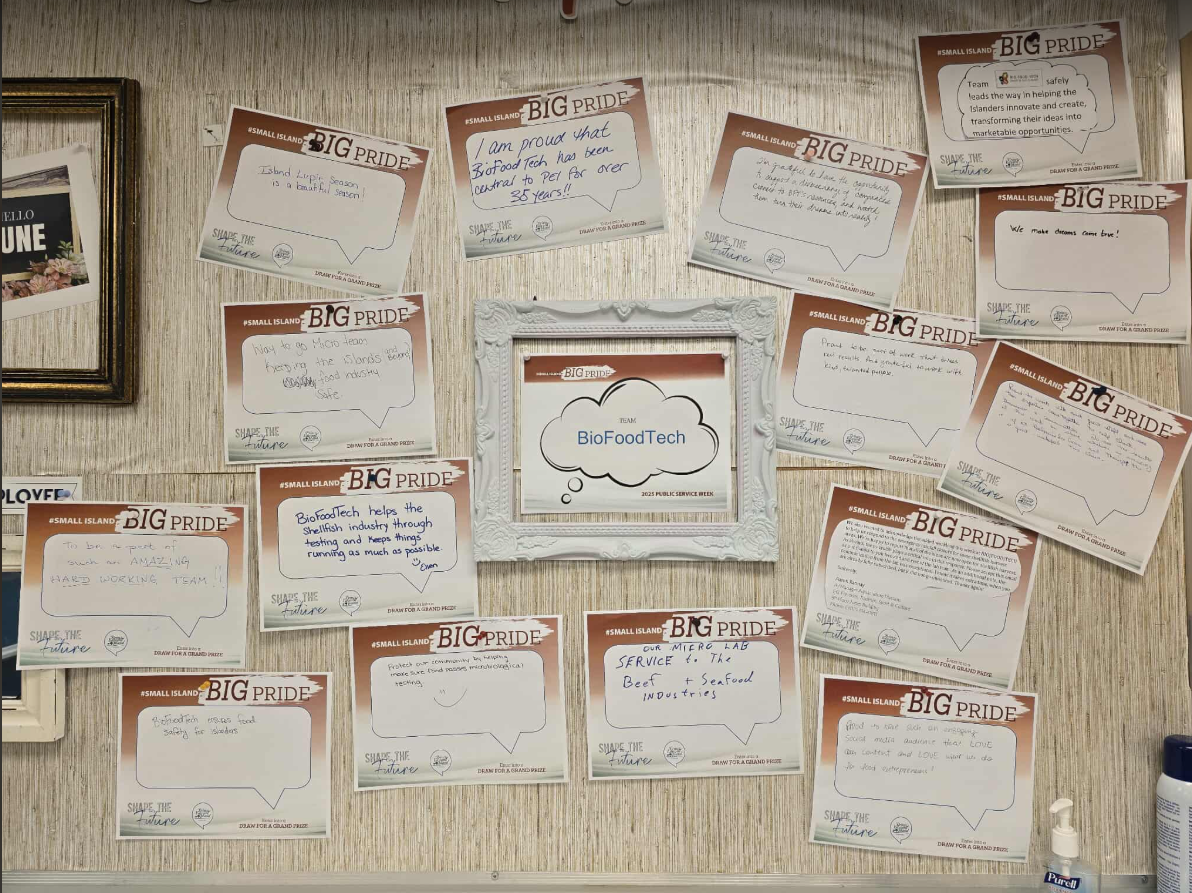 HELLO
UNE
PLOYEE
#SMALL ISLAND BIG PRIDE
Island Lupin Season
is a beautiful season!
SHAPE THE
Future
Enter into a
DRAW FOR A GRAND PRIZE
#SMALL ISLAND BIG PRIDE
I am proud that
BioFoodTech has been
central to PEI for over
35 years!!
SHAPE THE
Future
Enter into a
DRAW FOR A GRAND PRIZE
#SMALL ISLAND BIG PRIDE
I'm grateful to have the opportunity
to support a diverse array of companies
connect to BFT's resources, and watch
them turn their dreams into reality!
SHAPE THE
Future
Enter into a
DRAW FOR A GRAND PRIZE
#SMALL ISLAND BIG PRIDE
Team
safely
leads the way in helping the
Islanders innovate and create,
transforming their ideas into
marketable opportunities.
SHAPE THE
Future
Enter into a
DRAW FOR A GRAND PRIZE
#SMALL ISLAND BIG PRIDE
We make dreams come true!
SHAPE THE
Future
Enter into a
DRAW FOR A GRAND PRIZE
#SMALL ISLAND BIG PRIDE
Way to go Micro team
Keeping the islands and beyond
food industry
Safe
SHAPE THE
Future
Enter into a
DRAW FOR A GRAND PRIZE
#SMALL ISLAND BIG PRIDE
TEAM
BioFoodTech
2025 PUBLIC SERVICE WEEK
#SMALL ISLAND BIG PRIDE
Proud to be part of work that drives
real results and grateful to work with
kind, talented people.
SHAPE THE
Future
#SMALL ISLAND BIG PRIDE
SHAPE THE
Future
Enter into a
DRAW FOR A GRAND PRIZE
#SMALL ISLAND BIG PRIDE
To be a part of
such an AMAZING
HARD WORKING TEAM!!
SHAPE THE
Future
Enter into a
DRAW FOR A GRAND PRIZE
#SMALL ISLAND BIG PRIDE
BioFoodTech helps the
Shellfish industry through
testing and keeps things
running as much as possible.
Owen
SHAPE THE
Future
Enter into a
DRAW FOR A GRAND PRIZE
#SMALL ISLAND BIG PRIDE
SHAPE THE
Future
Enter into a
DRAW FOR A GRAND PRIZE
#SMALL ISLAND BIG PRIDE
Protect our community by helping
make sure food passes microbiological
testing.
SHAPE THE
Future
Enter into a
DRAW FOR A GRAND PRIZE
#SMALL ISLAND BIG PRIDE
OUR MICRO LAB
SERVICE to The
Beef + SeaFood
INDustries
SHAPE THE
Future
Enter into a
DRAW FOR A GRAND PRIZE
#SMALL ISLAND BIG PRIDE
BioFoodTech assures food
safety for islanders
SHAPE THE
Future
Enter into a
DRAW FOR A GRAND PRIZE
#SMALL ISLAND BIG PRIDE
Proud to have such an engaging
Social media audience that LOVE
our content and LOVE what we do
for food entrepreneurs!
SHAPE THE
Future
Enter into a
DRAW FOR A GRAND PRIZE
Purell